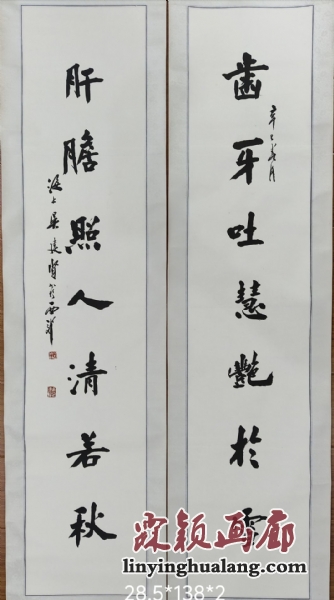 齒牙吐慧艷於雪
肝膽照人清若秋
霖颖画廊
linyinghualang.com
28.5*138*2